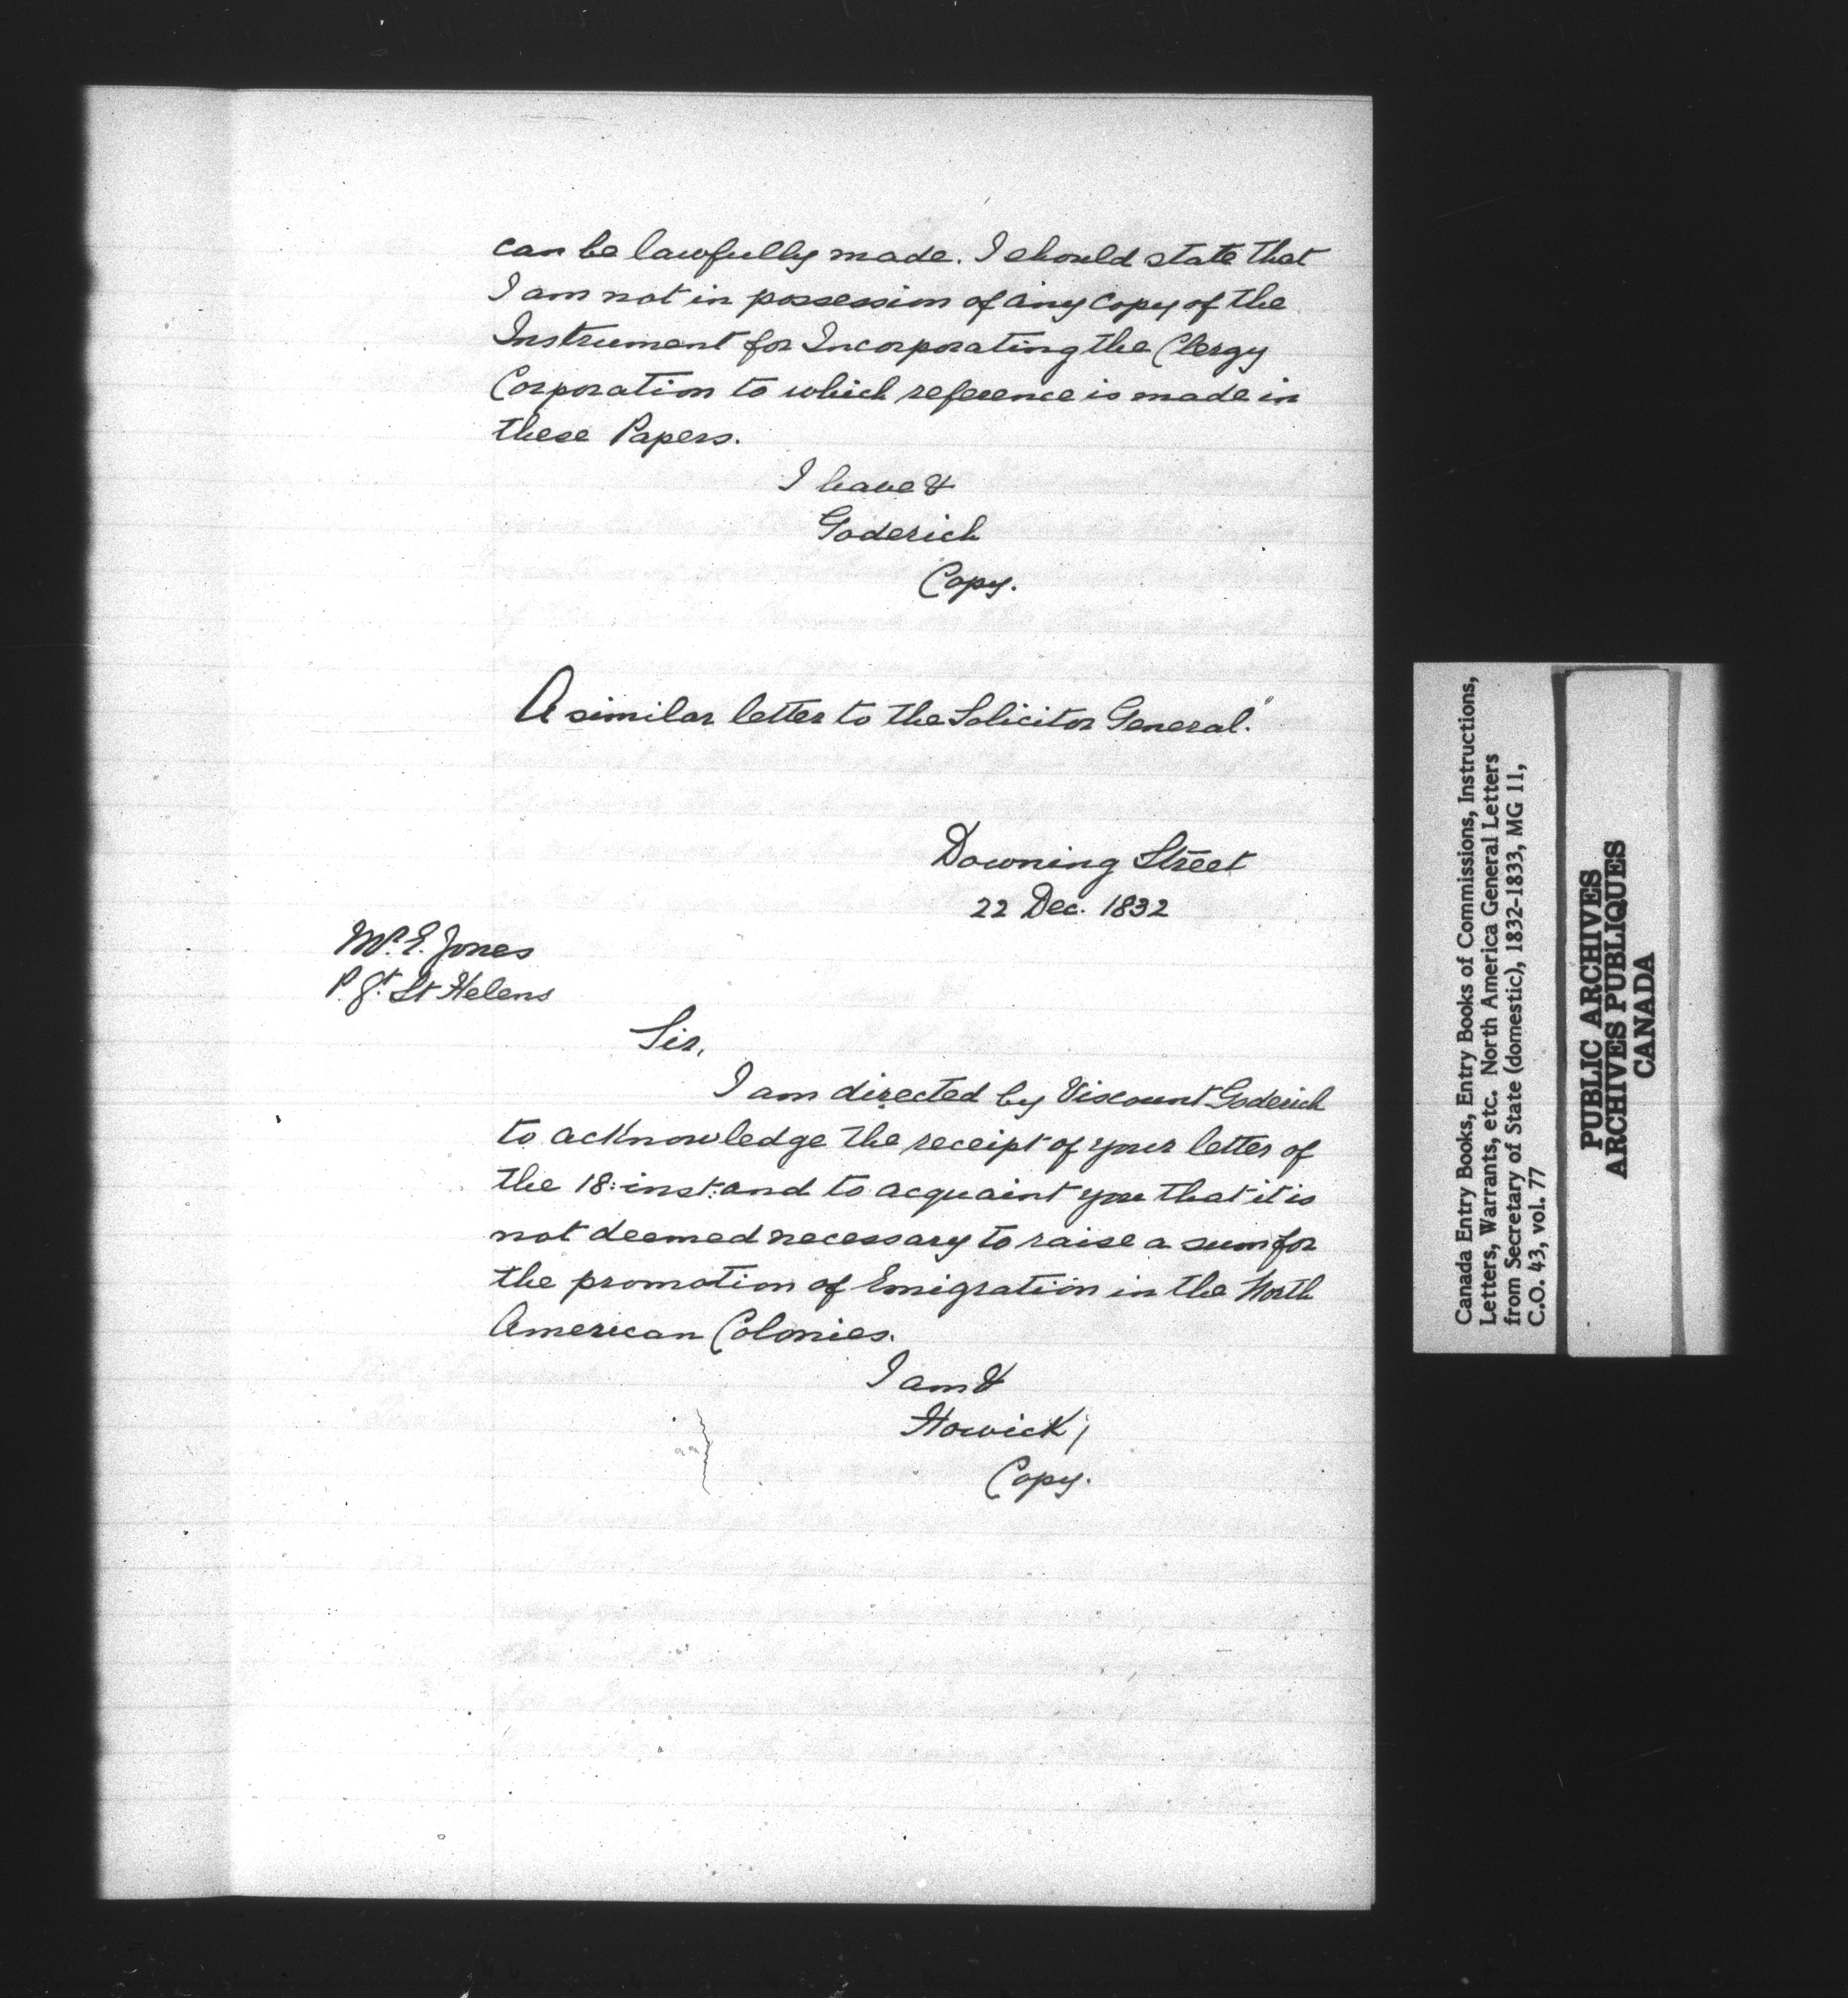 can be lawfully made. I should state that
I am not in possession of any Copy of the
Instrument for Incorporating the Clergy
Corporation to which reference is made in
these Papers.
I have &
Goderich
Copy.
A similar letter to the Solicitor General."
Downing Street
22 Dec. 1832
Mr. E. Jones
St Helens
Sir,
I am directed by Viscount Goderich
to acknowledge the receipt of your letter of
the 18: inst: and to acquaint you that it is
not deemed necessary to raise a sum for
the promotion of Emigration in the North
American Colonies.
I am &
Howick,
Copy.
Canada Entry Books, Entry Books of Commissions, Instructions,
Letters, Warrants, etc. North America General Letters
from Secretary of State (domestic), 1832-1833, MG 11,
C.O. 43, vol. 77
PUBLIC ARCHIVES
ARCHIVES PUBLIQUES
CANADA